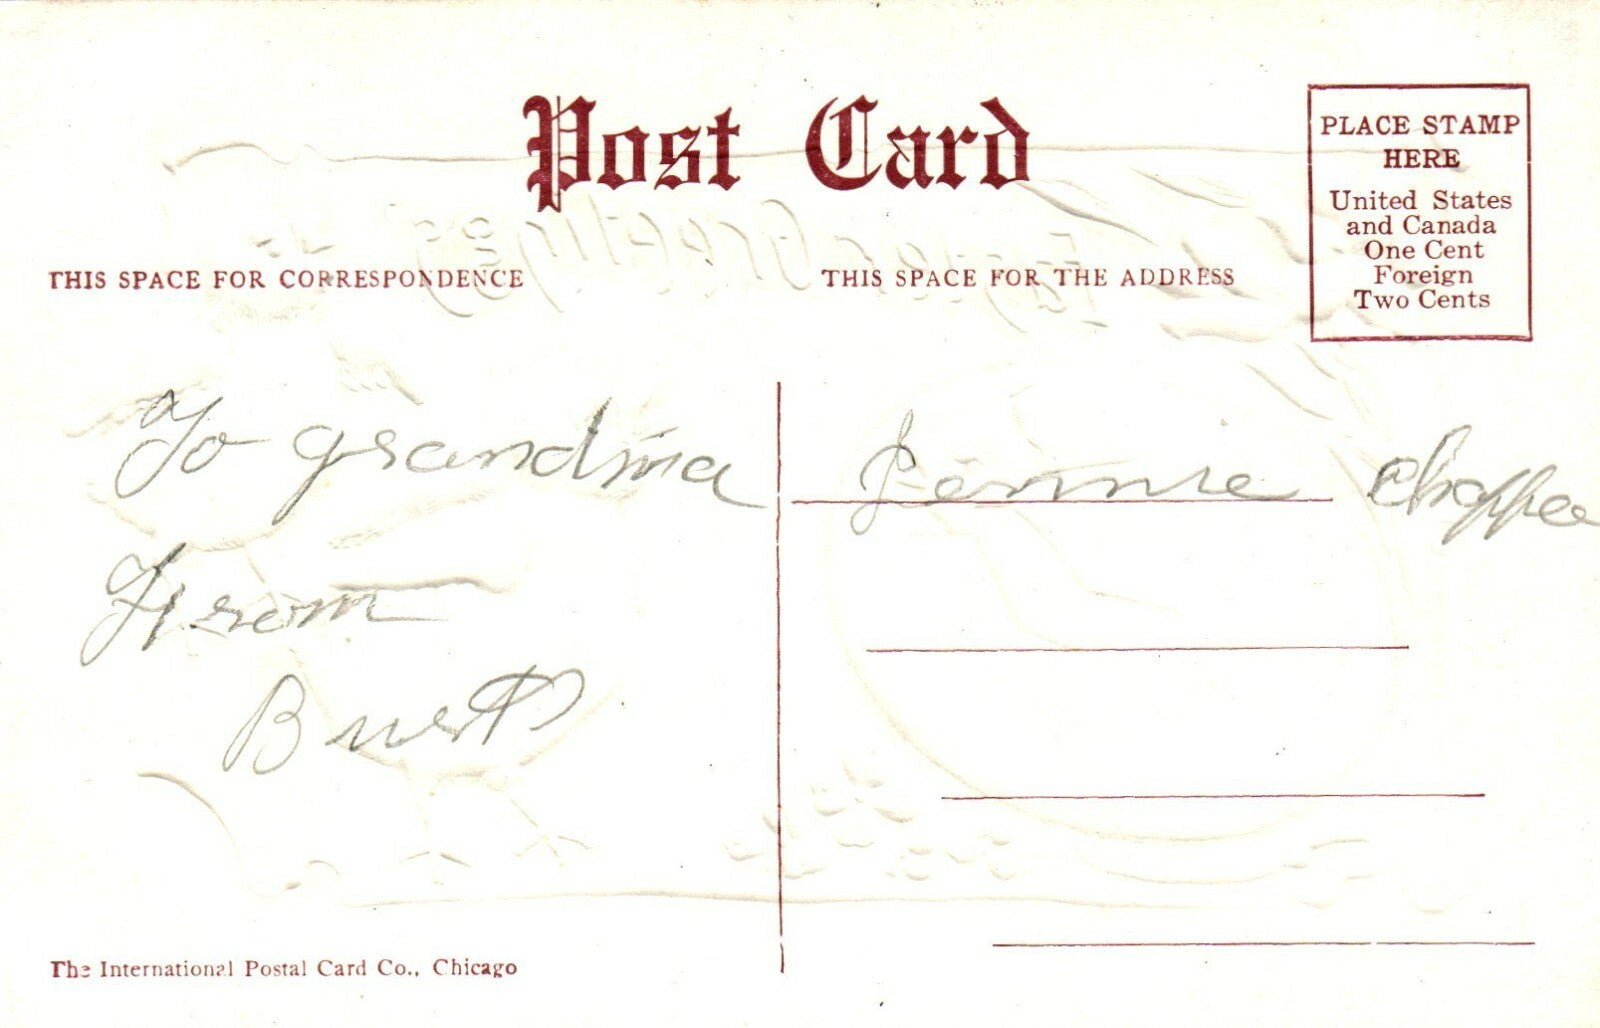 Post Card
PLACE STAMP
HERE
United States
and Canada
One Cent
Foreign
Two Cents
THIS SPACE FOR CORRESPONDENCE
THIS SPACE FOR THE ADDRESS
To grandma
From
Burt
Jennie
The International Postal Card Co., Chicago